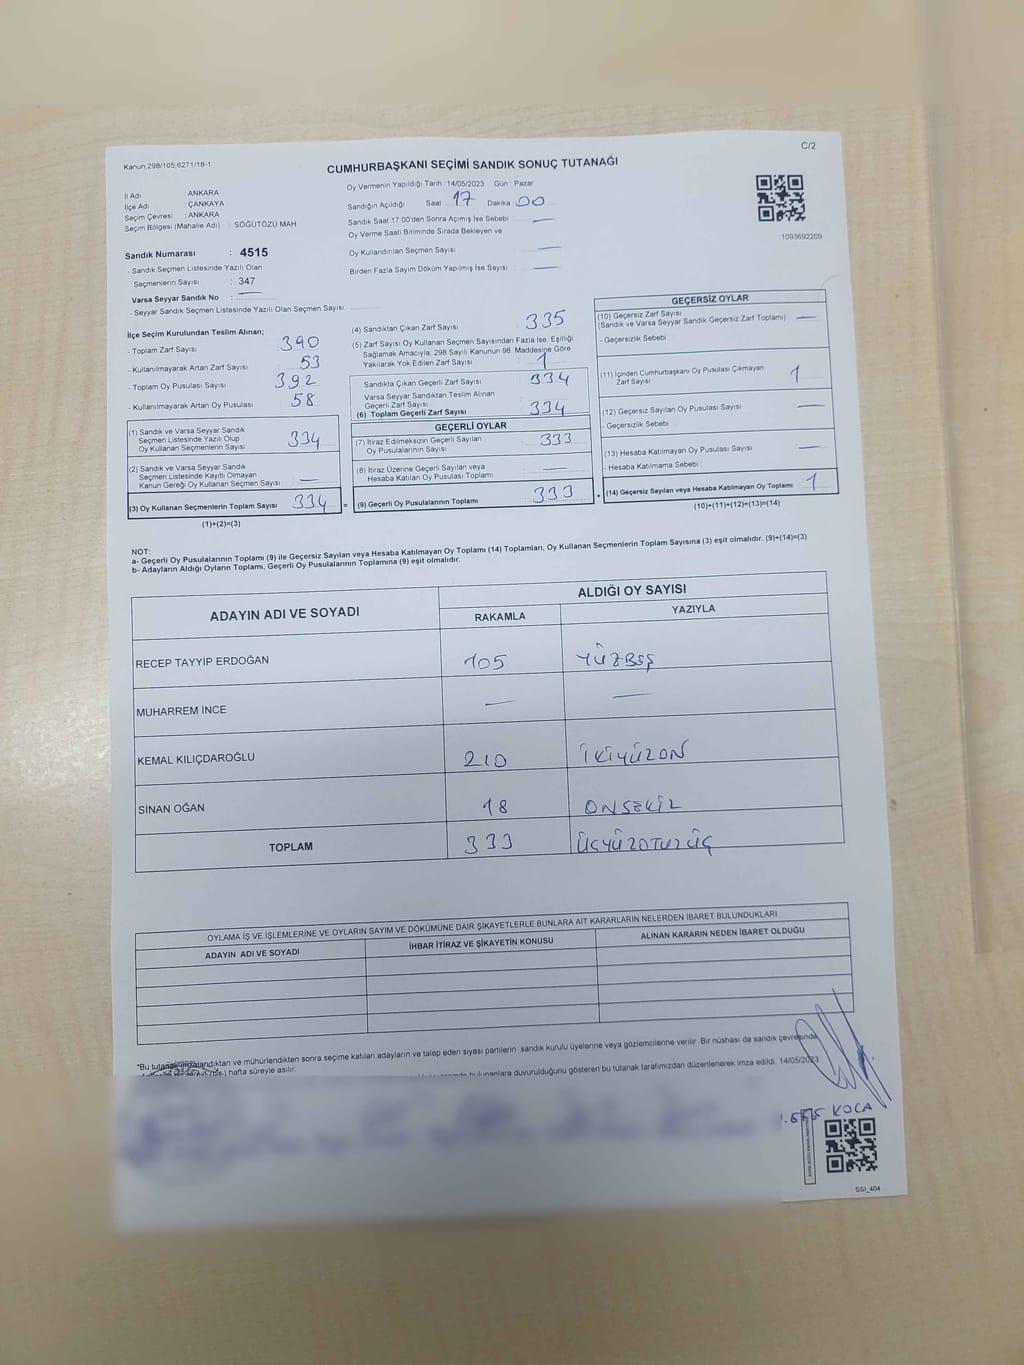 Kanun 298/105,6271/18-1
C/2
CUMHURBAŞKANI SEÇİMİ SANDIK SONUÇ TUTANAĞI
İl Adı : ANKARA
İlçe Adı : ÇANKAYA
Seçim Çevresi : ANKARA
Seçim Bölgesi (Mahalle Adı) : SÖĞÜTÖZÜ MAH
Oy Vermenin Yapıldığı Tarih : 14/05/2023 Gün : Pazar
Sandığın Açıldığı Saat : 17 Dakika : 00
Sandık Saat 17:00'den Sonra Açımış İse Sebebi : —
Oy Verme Saati Bitiminde Sırada Bekleyen ve
Oy Kullandırılan Seçmen Sayısı : —
Birden Fazla Sayım Döküm Yapılmış İse Sayısı : —
1093692209
Sandık Numarası : 4515
- Sandık Seçmen Listesinde Yazılı Olan
Seçmenlerin Sayısı : 347
Varsa Seyyar Sandık No : —
- Seyyar Sandık Seçmen Listesinde Yazılı Olan Seçmen Sayısı :
İlçe Seçim Kurulundan Teslim Alınan;
- Toplam Zarf Sayısı : 390
- Kullanılmayarak Artan Zarf Sayısı : 53
- Toplam Oy Pusulası Sayısı : 392
- Kullanılmayarak Artan Oy Pusulası : 58
(1) Sandık ve Varsa Seyyar Sandık
Seçmen Listesinde Yazılı Olup
Oy Kullanan Seçmenlerin Sayısı : 334
(2) Sandık ve Varsa Seyyar Sandık
Seçmen Listesinde Kayıtlı Olmayan
Kanun Gereği Oy Kullanan Seçmen Sayısı : —
(3) Oy Kullanan Seçmenlerin Toplam Sayısı : 334 =
(1)+(2)=(3)
(4) Sandıktan Çıkan Zarf Sayısı : 335
(5) Zarf Sayısı Oy Kullanan Seçmen Sayısından Fazla İse, Eşitliği
Sağlamak Amacıyla; 298 Sayılı Kanunun 98. Maddesine Göre
Yakılarak Yok Edilen Zarf Sayısı : 1
Sandıkta Çıkan Geçerli Zarf Sayısı : 334
Varsa Seyyar Sandıktan Teslim Alınan
Geçerli Zarf Sayısı :
(6) Toplam Geçerli Zarf Sayısı : 334
GEÇERLİ OYLAR
(7) İtiraz Edilmeksizin Geçerli Sayılan
Oy Pusulalarının Sayısı : 333
(8) İtiraz Üzerine Geçerli Sayılan veya
Hesaba Katılan Oy Pusulası Toplamı : —
(9) Geçerli Oy Pusulalarının Toplamı : 333 +
GEÇERSİZ OYLAR
(10) Geçersiz Zarf Sayısı
(Sandık ve Varsa Seyyar Sandık Geçersiz Zarf Toplamı) : —
- Geçersizlik Sebebi :
(11) İçinden Cumhurbaşkanı Oy Pusulası Çıkmayan
Zarf Sayısı : 1
(12) Geçersiz Sayılan Oy Pusulası Sayısı : —
- Geçersizlik Sebebi :
(13) Hesaba Katılmayan Oy Pusulası Sayısı : —
- Hesaba Katılmama Sebebi :
(14) Geçersiz Sayılan veya Hesaba Katılmayan Oy Toplamı : 1
(10)+(11)+(12)+(13)=(14)
NOT:
a- Geçerli Oy Pusulalarının Toplamı (9) ile Geçersiz Sayılan veya Hesaba Katılmayan Oy Toplamı (14) Toplamları, Oy Kullanan Seçmenlerin Toplam Sayısına (3) eşit olmalıdır. (9)+(14)=(3)
b- Adayların Aldığı Oyların Toplamı, Geçerli Oy Pusulalarının Toplamına (9) eşit olmalıdır.
ADAYIN ADI VE SOYADI
ALDIĞI OY SAYISI
RAKAMLA YAZIYLA
RECEP TAYYİP ERDOĞAN 105 YÜZBEŞ
MUHARREM İNCE — —
KEMAL KILIÇDAROĞLU 210 İKİYÜZON
SİNAN OĞAN 18 ONSEKİZ
TOPLAM 333 ÜÇYÜZOTUZÜÇ
OYLAMA İŞ VE İŞLEMLERİNE VE OYLARIN SAYIM VE DÖKÜMÜNE DAİR ŞİKAYETLERLE BUNLARA AİT KARARLARIN NELERDEN İBARET BULUNDUKLARI
ADAYIN ADI VE SOYADI İHBAR İTİRAZ VE ŞİKAYETİN KONUSU ALINAN KARARIN NEDEN İBARET OLDUĞU
*Bu tutanak imzalandıktan ve mühürlendikten sonra seçime katılan adayların ve talep eden siyasi partilerin sandık kurulu üyelerine veya gözlemcilerine verilir. Bir nüshası da sandık çevresinde
hafta süreyle asılır.
bulunanlara duyurulduğunu gösteren bu tutanak tarafımızdan düzenlenerek imza edildi. 14/05/2023
KOCA
SSI_404